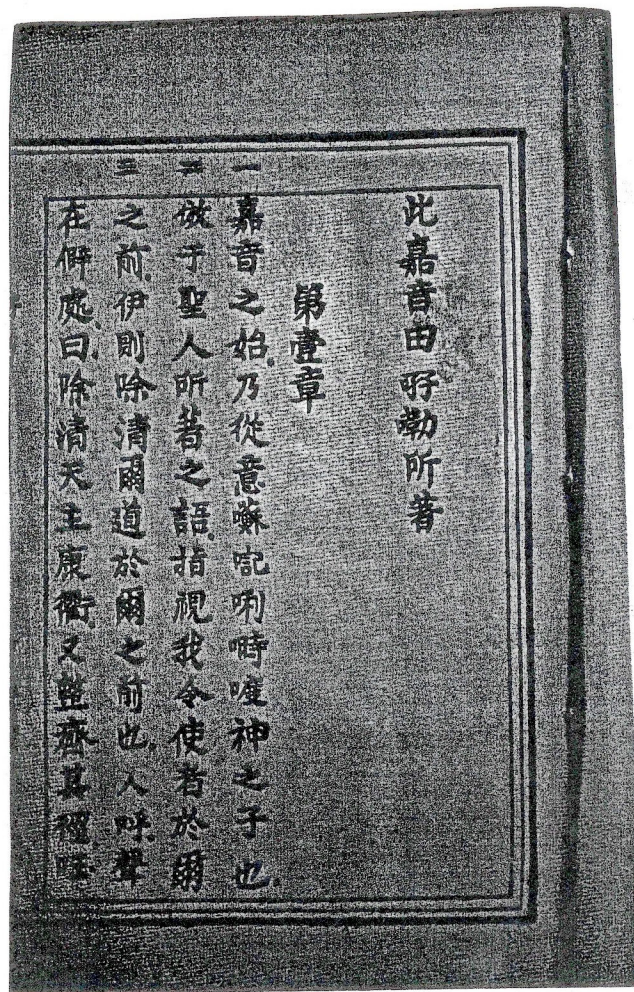 此嘉音由㖿勒所著
第壹章
一 嘉音之始乃從意囌唎時嗹神之子也
二 倣于聖人所著之語指視我令使者於爾
三 之前伊則除清爾道於爾之前也人呼聲
在僻處曰除清天主康衢又整齊其徑